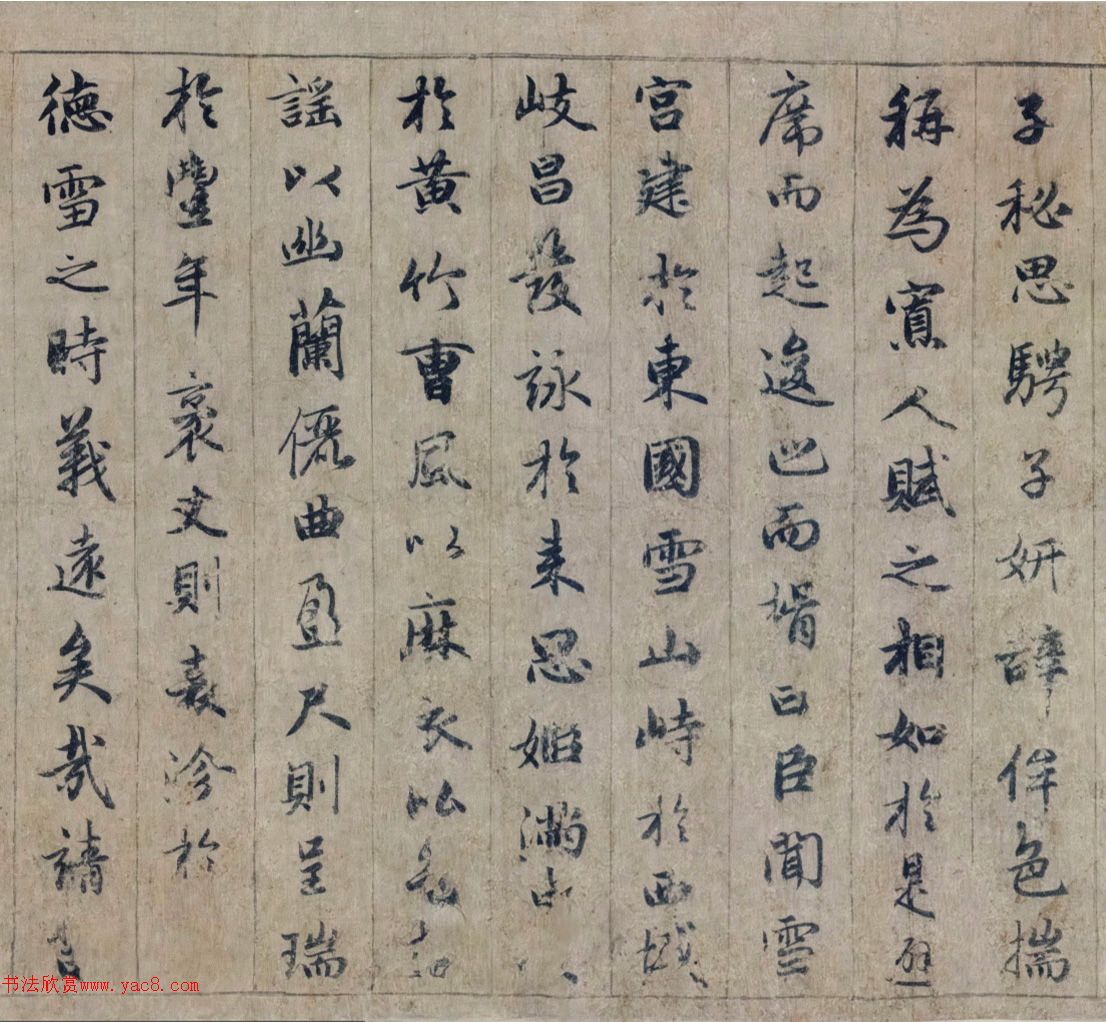 子秘思騁子妍辭侔色揣
稱為寡人賦之相如於是避
席而起逡巡而揖曰臣聞雪
宮建於東國雪山峙於西域
岐昌發詠於来思姬滿申
於黃竹曹風以麻衣比色楚
謠以幽蘭儷曲盈尺則呈瑞
於豐年袤丈則表沴於
德雪之時義遠矣哉請言
书法欣赏www.yac8.com